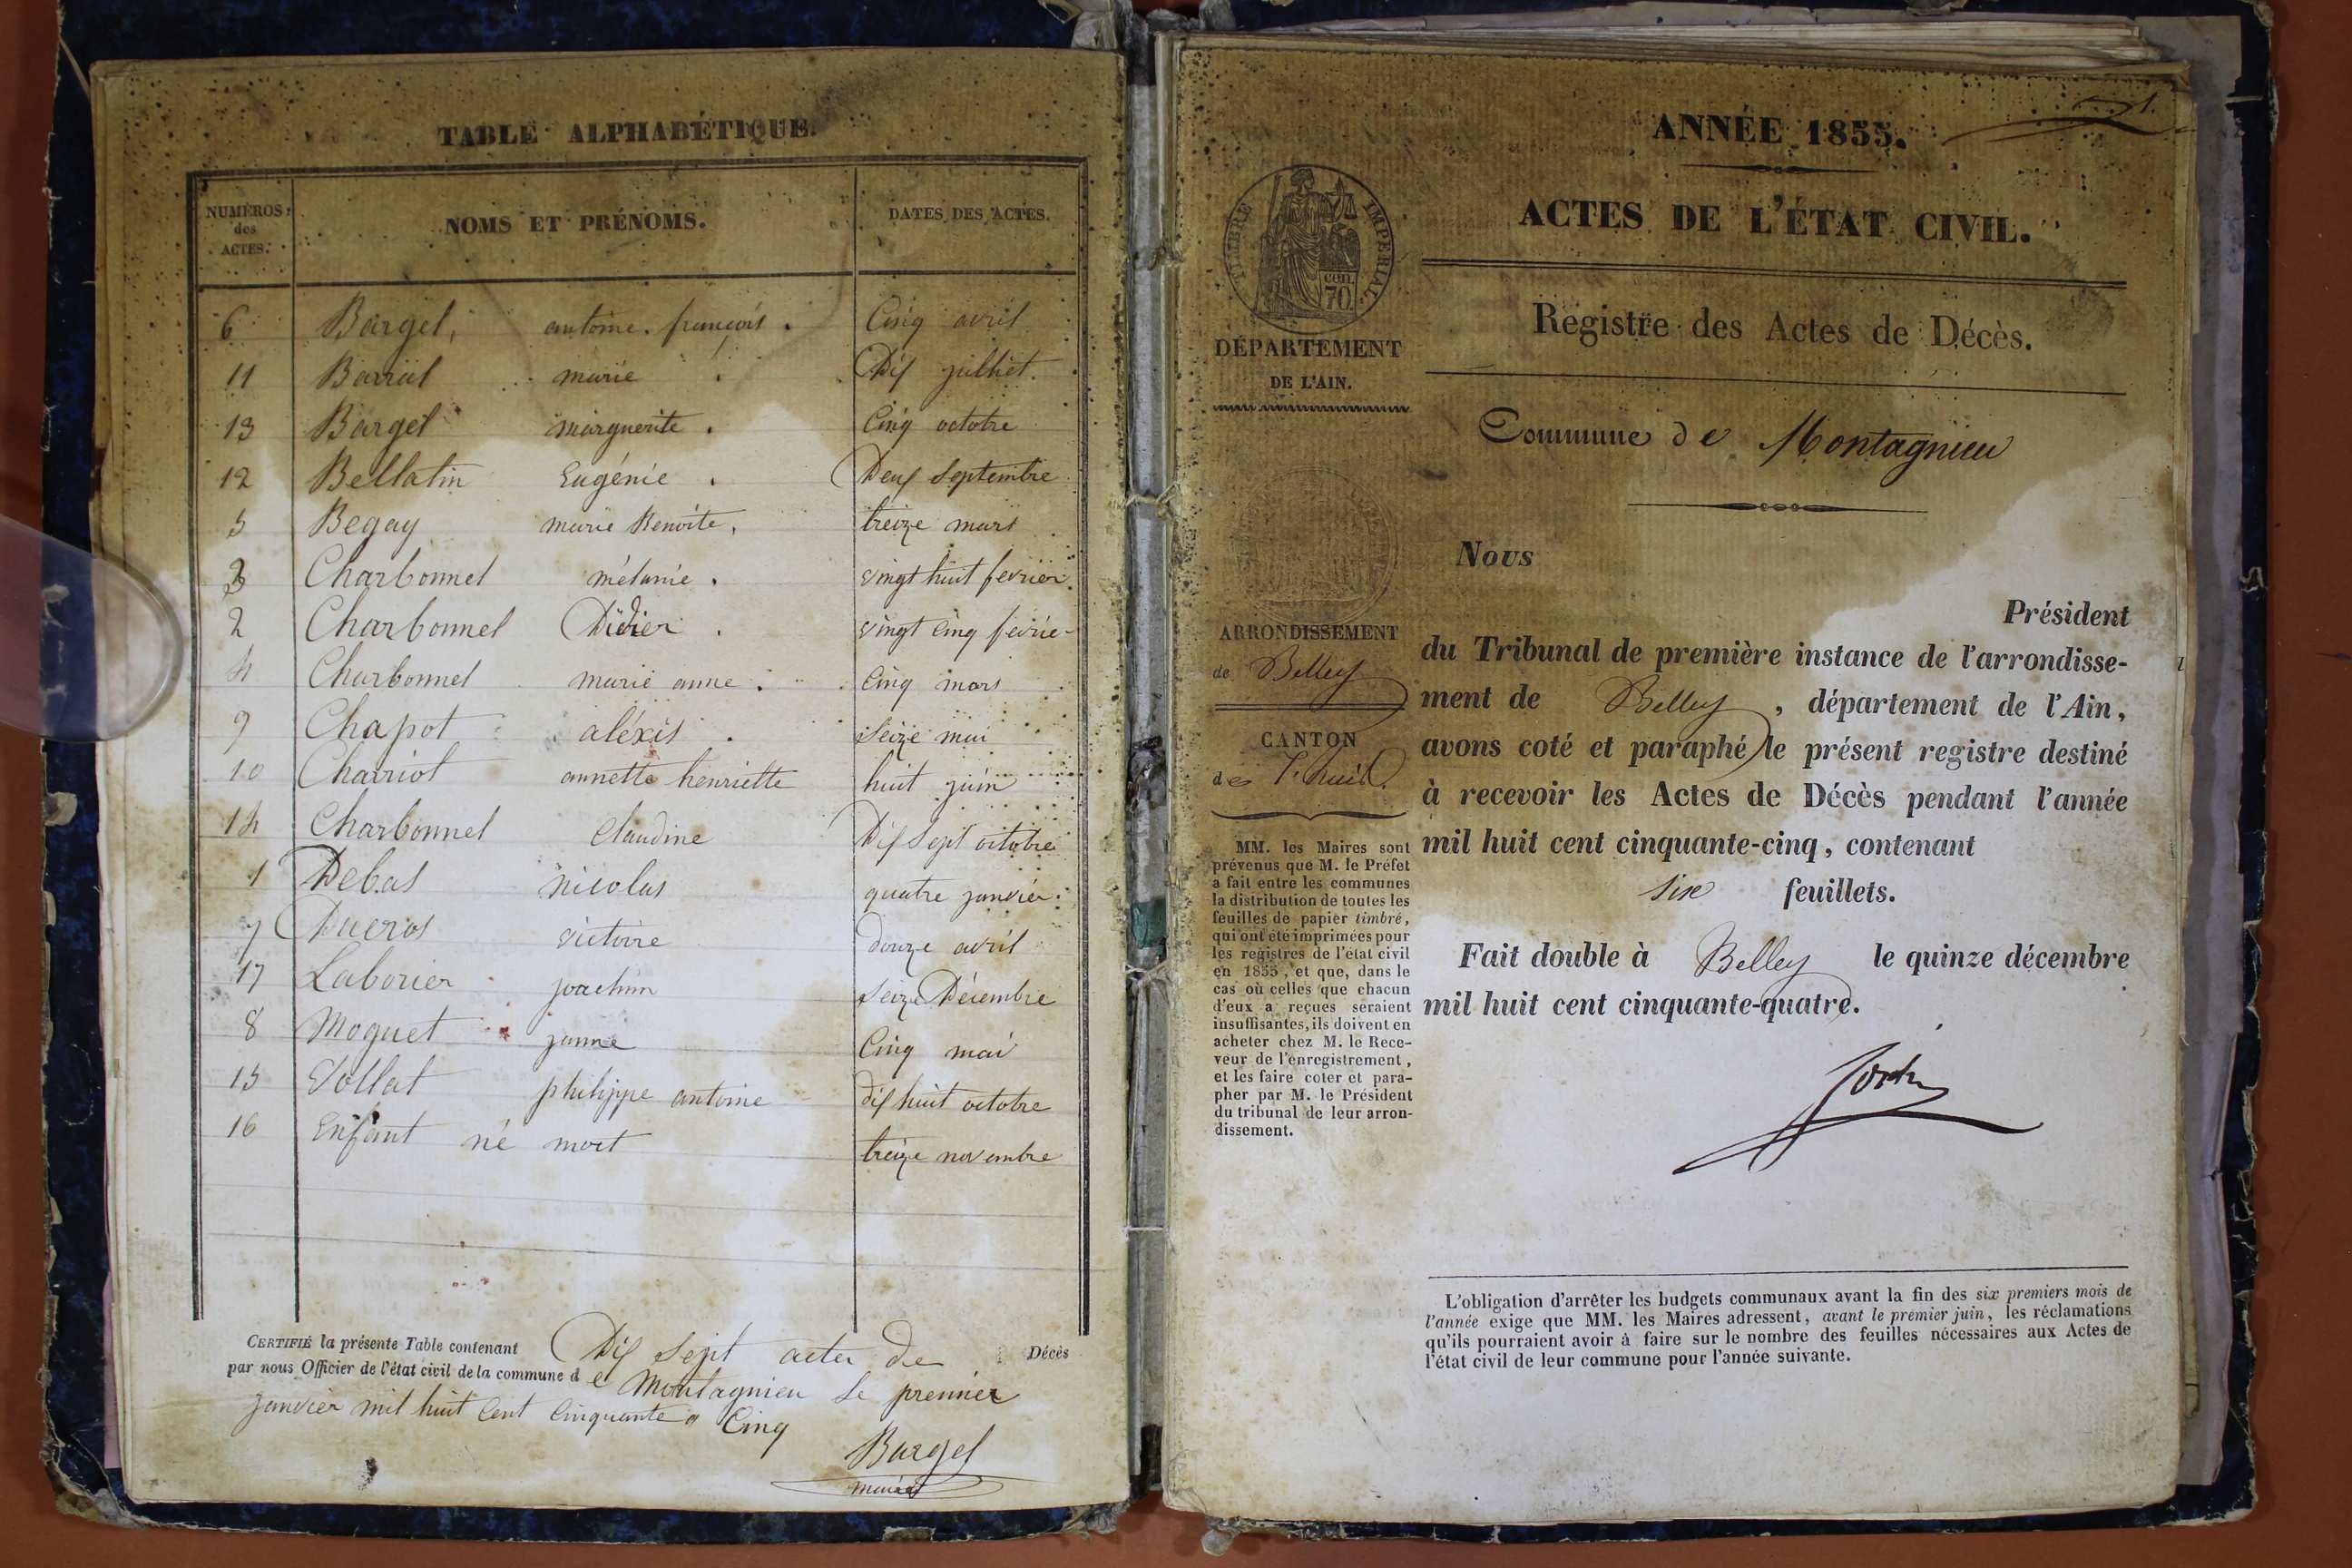 TABLE ALPHABÉTIQUE.
NUMÉROS des ACTES. NOMS ET PRÉNOMS. DATES DES ACTES.
6 Bargel, antoine françois. Cinq avril
11 Barral marie Dix juillet.
13 Bargel marguerite. Cinq octobre
12 Bellatin Eugénie. Deux Septembre
5 Begay marie Benoite, treize mars
3 Charbonnel mélanie. vingt huit fevrier
2 Charbonnel Didier. vingt cinq fevrie
4 Charbonnel marie anne. Cinq mars
9 Chapot aléxis. Seize mai
10 Charriot annette henriette huit juin
14 Charbonnel Claudine Dix Sept octobre
1 Debas nicolas quatre janvier
7 Ducros victoire douze avril
17 Laborier joachim Seize Décembre
8 Moguet janne Cinq mai
15 Vollat philippe antoine dix huit octobre
16 Enfant né mort treize novembre
CERTIFIÉ la présente Table contenant Dix Sept actes de Décès
par nous Officier de l'état civil de la commune de Montagnieu le premier
janvier mil huit Cent Cinquante Cinq
Bargel
maire
1.
ANNÉE 1855.
ACTES DE L'ÉTAT CIVIL.
Registre des Actes de Décès.
TIMBRE IMPÉRIAL
70 cen.
DÉPARTEMENT
DE L'AIN.
Commune de Montagnieu
ARRONDISSEMENT
de Belley
CANTON
de L'huis.
MM. les Maires sont
prévenus que M. le Préfet
a fait entre les communes
la distribution de toutes les
feuilles de papier timbré,
qui ont été imprimées pour
les registres de l'état civil
en 1855, et que, dans le
cas où celles que chacun
d'eux a reçues seraient
insuffisantes, ils doivent en
acheter chez M. le Rece-
veur de l'enregistrement,
et les faire coter et para-
pher par M. le Président
du tribunal de leur arron-
dissement.
Nous
Président
du Tribunal de première instance de l'arrondisse-
ment de Belley, département de l'Ain,
avons coté et paraphé le présent registre destiné
à recevoir les Actes de Décès pendant l'année
mil huit cent cinquante-cinq, contenant
six feuillets.
Fait double à Belley le quinze décembre
mil huit cent cinquante-quatre.
L'obligation d'arrêter les budgets communaux avant la fin des six premiers mois de
l'année exige que MM. les Maires adressent, avant le premier juin, les réclamations
qu'ils pourraient avoir à faire sur le nombre des feuilles nécessaires aux Actes de
l'état civil de leur commune pour l'année suivante.